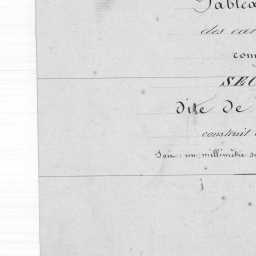 Tablea
des car
com
SEC
dite de
construit
Soit un millimètre